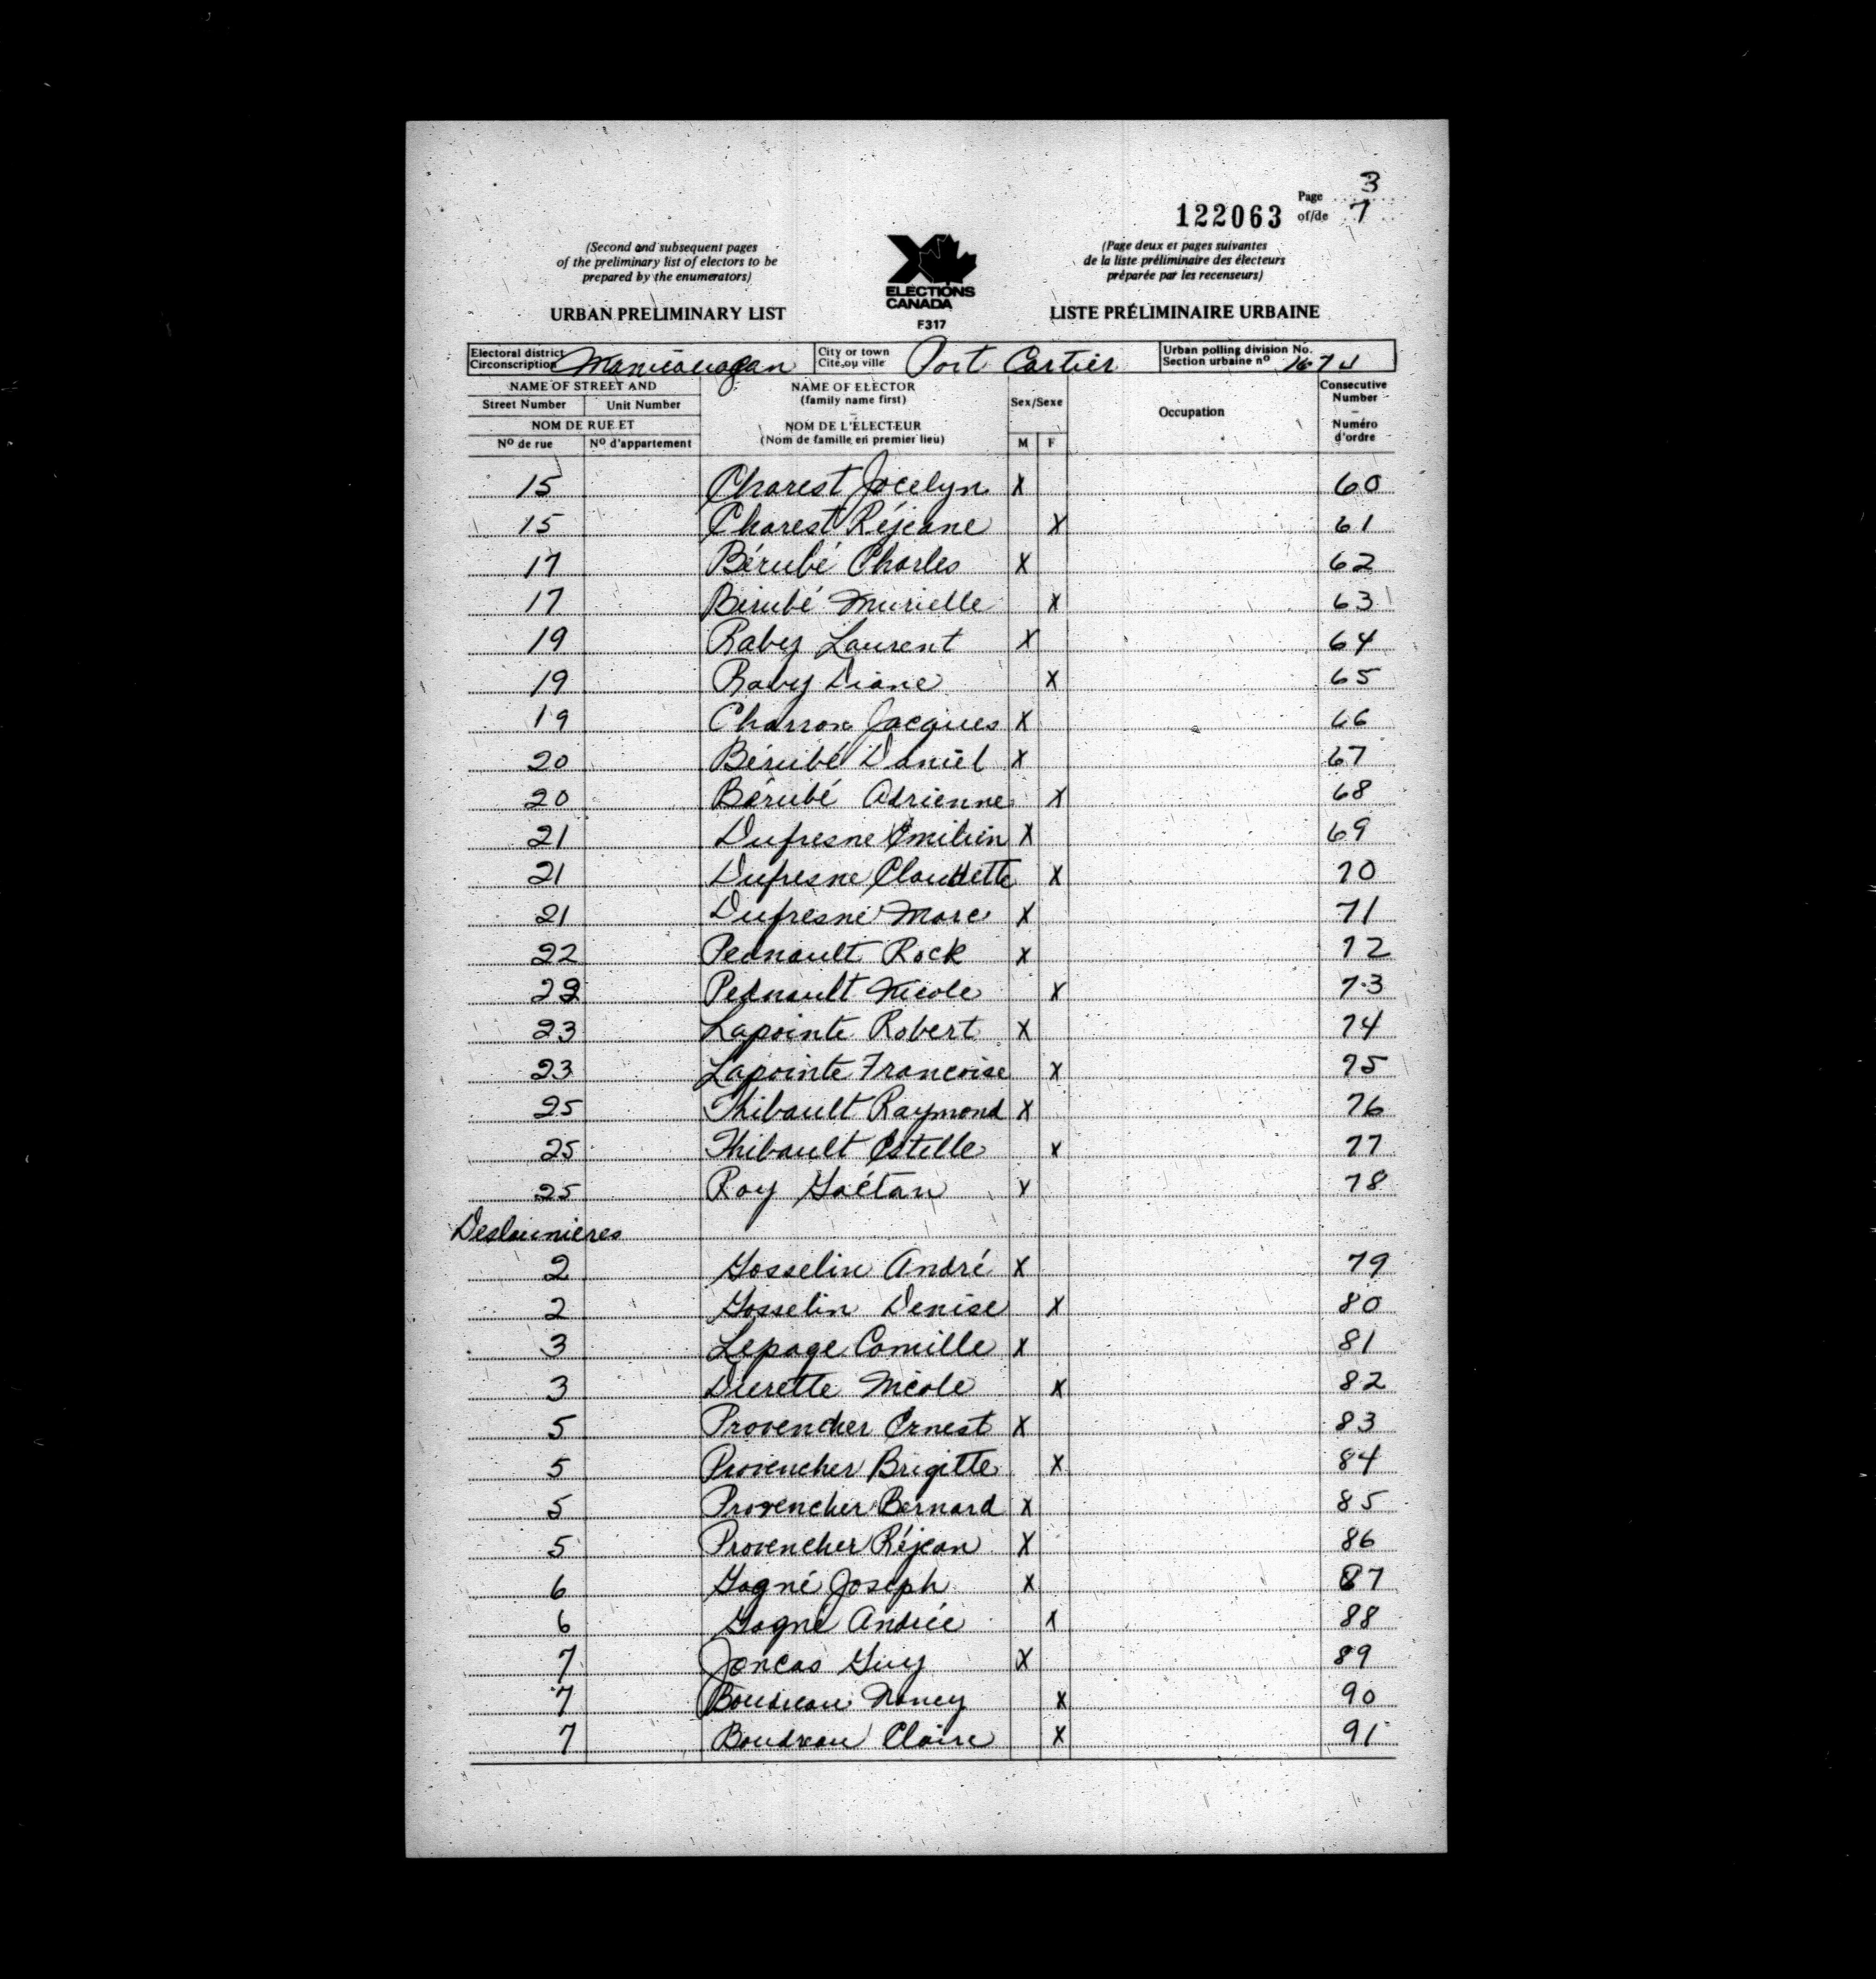 Page 3
122063 of/de 7
(Second and subsequent pages
of the preliminary list of electors to be
prepared by the enumerators)
URBAN PRELIMINARY LIST
ELECTIONS
CANADA
F317
(Page deux et pages suivantes
de la liste préliminaire des électeurs
préparée par les recenseurs)
LISTE PRÉLIMINAIRE URBAINE
Electoral district
Circonscription Manicouagan
City or town
Cité ou ville Port Cartier
Urban polling division No.
Section urbaine nº
NAME OF STREET AND
Street Number Unit Number
NOM DE RUE ET
Nº de rue Nº d'appartement
NAME OF ELECTOR
(family name first)
–
NOM DE L'ÉLECTEUR
(Nom de famille en premier lieu)
Sex/Sexe
M F
Occupation
Consecutive
Number
–
Numéro
d'ordre
15 Charest Jocelyn X 60
15 Charest Réjeane X 61
17 Bérubé Charles X 62
17 Bérubé Murielle X 63
19 Raby Laurent X 64
19 Raby Diane X 65
19 Charron Jacques X 66
20 Bérubé Daniel X 67
20 Bérubé Adrienne X 68
21 Dufresne Emilien X 69
21 Dufresne Claudette X 70
21 Dufresne Marc X 71
22 Pednault Rock X 72
22 Pednault Nicole X 73
23 Lapointe Robert X 74
23 Lapointe Francoise X 75
25 Thibault Raymond X 76
25 Thibault Estelle X 77
25 Roy Gaétan X 78
Deslauniers
2 Gosselin André X 79
2 Gosselin Denise X 80
3 Lepage Camille X 81
3 Durette Nicole X 82
5 Provencher Ernest X 83
5 Provencher Brigitte X 84
5 Provencher Bernard X 85
5 Provencher Réjean X 86
6 Gagné Joseph X 87
6 Gagné Andrée X 88
7 Joncas Guy X 89
7 Boudreau Nancy X 90
7 Boudreau Claire X 91